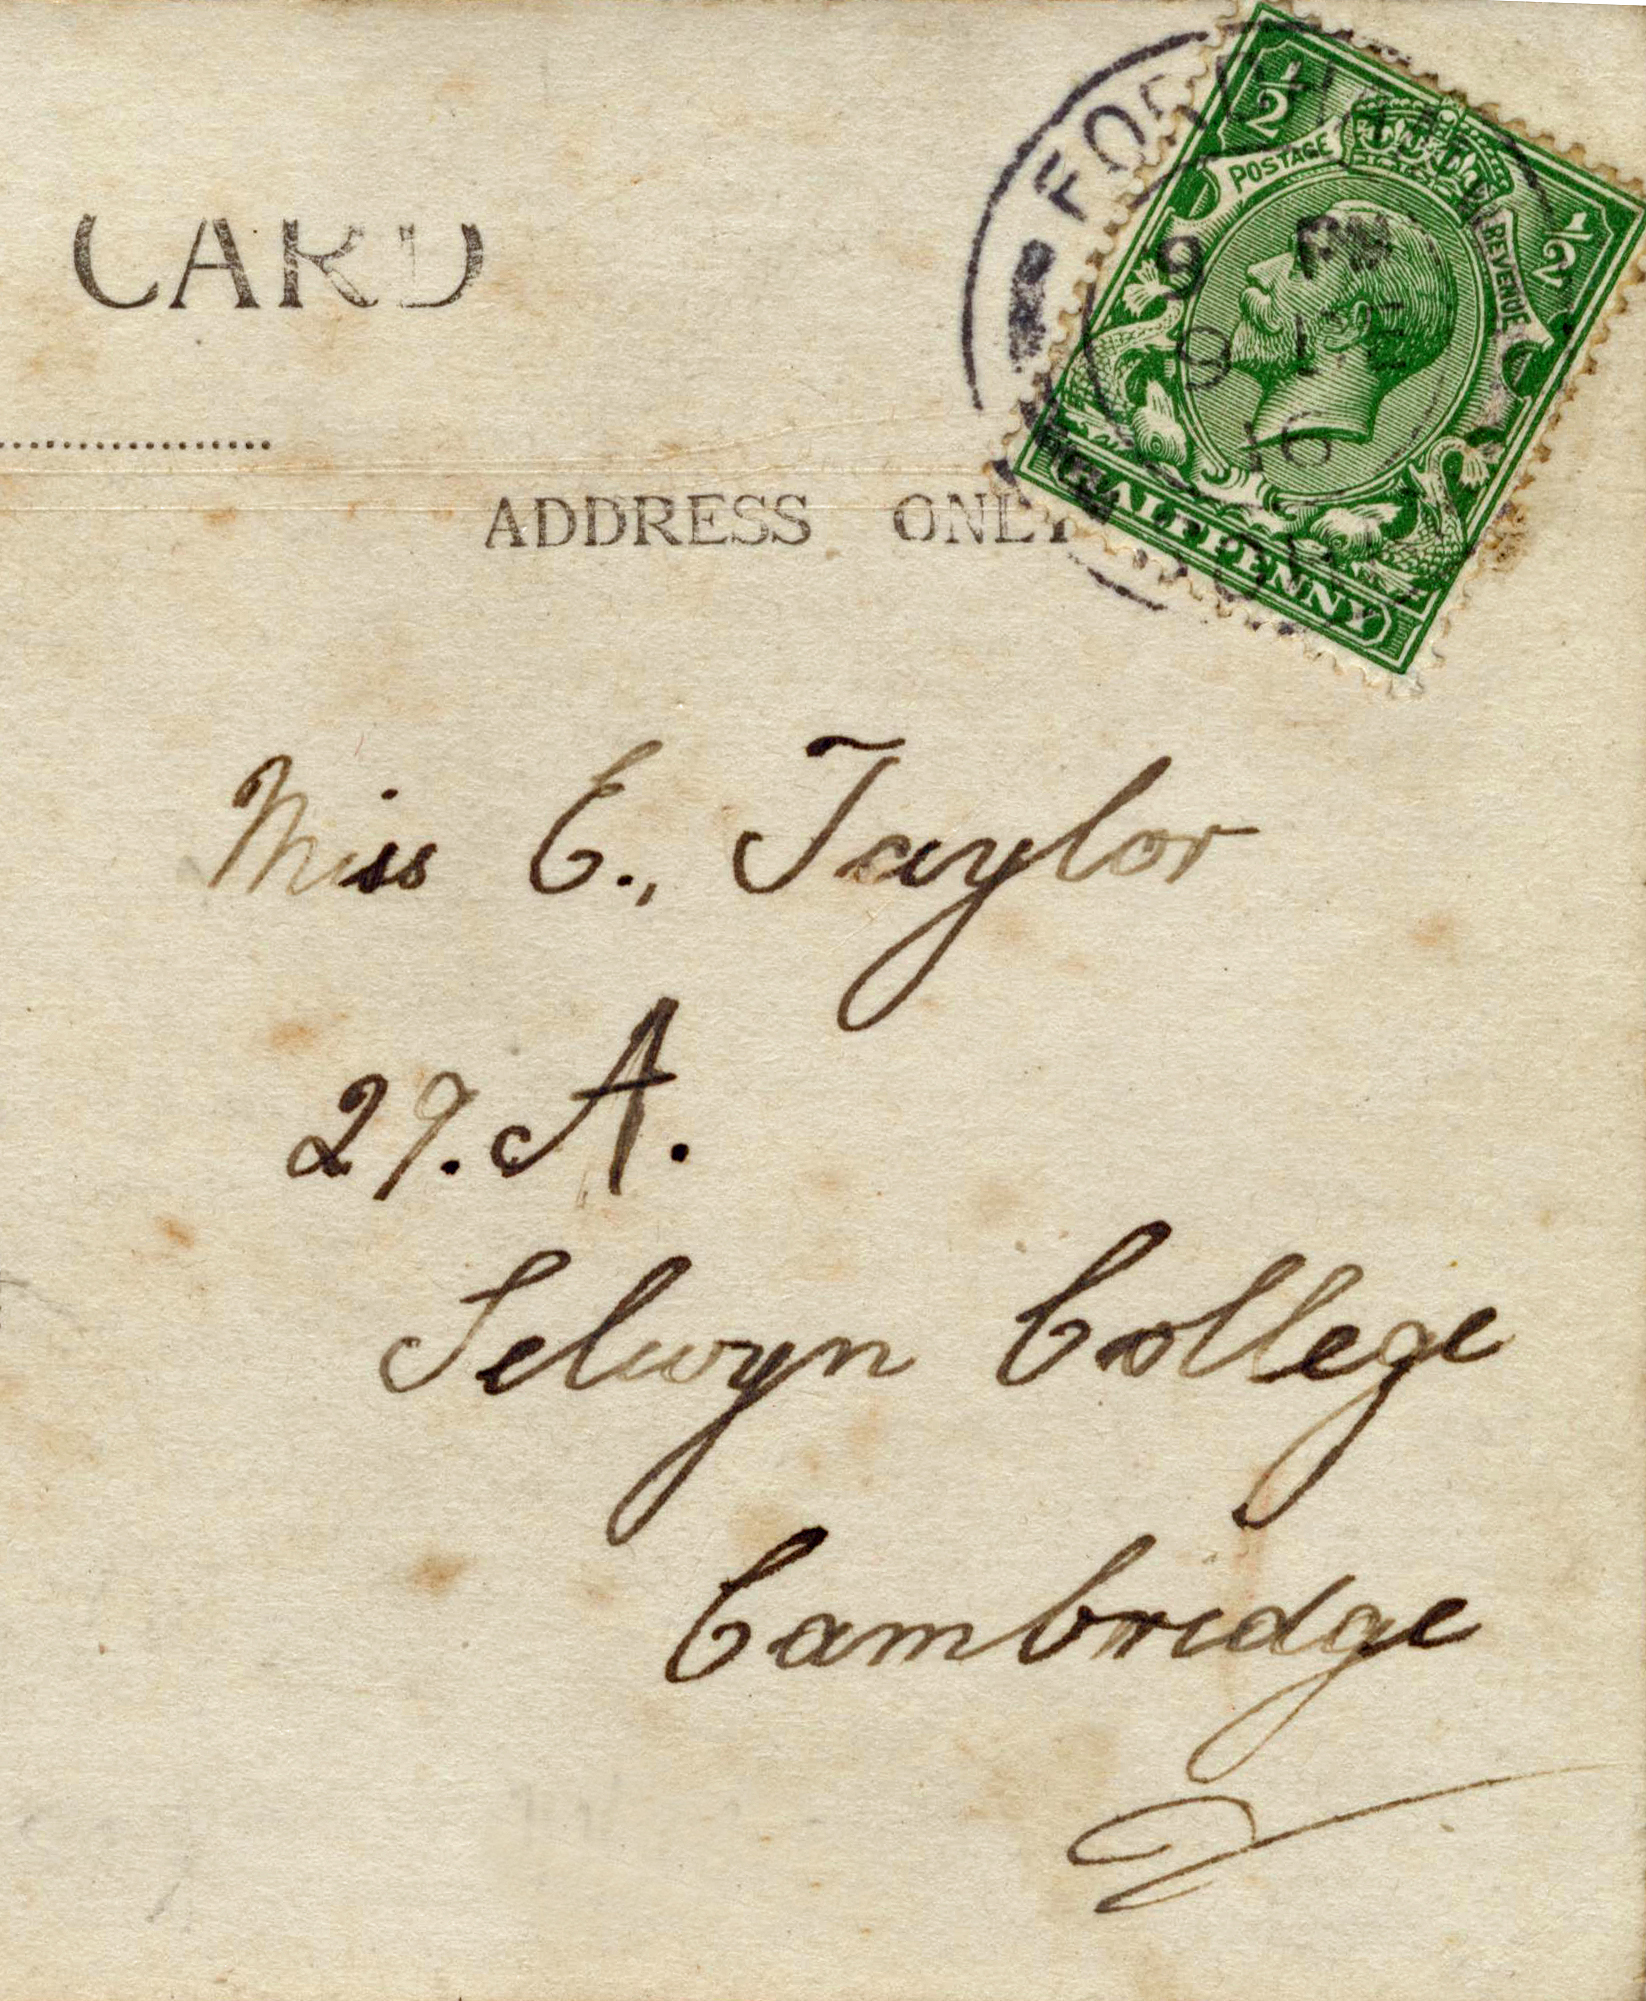 CARD
ADDRESS ONLY
½ ½
POSTAGE REVENUE
9 PM
9
16
HALFPENNY
Miss E., Taylor
29. A.
Selwyn College
Cambridge